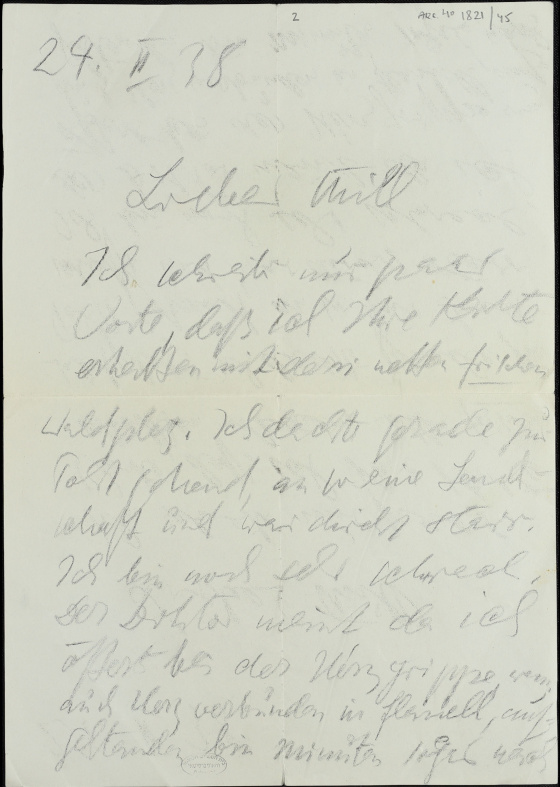 2
ARC. 4° 1821/45
24. II 38
Lieber Till
Ich schreibe nur paar
Worte, daß ich Ihre Karte
erhalten mit dem netten frischen
Waldplatz. Ich dachte gerade zur
Post gehend, an so eine Land-
schaft und war direkt starr.
Ich bin noch sehr schwach.
Der Doktor meint da ich
öfters bei der Herzgrippe, wenn
auch Herz verbunden in Flanell, auf-
gestanden bin Minuten sogar